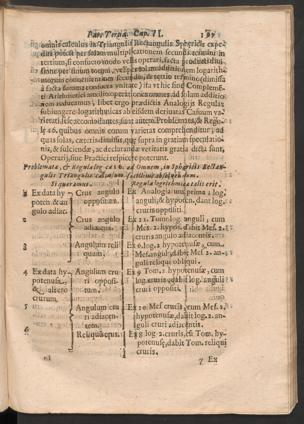 Pars Tertia. Cap. II.
omnis calculus in Triangulis Rectangulis Sphæricis expe-
diri possit per solam multiplicationem secundi termini in
tertium, si confucto modo velis operari, facta producti di-
per sinum totum, vel per solum additionem logarith-
secundi, & tertio termino (dimissa
à facta summa unitate) Ita vt hic fine Complemen-
ti Arithmetici ope, solum additio-
nem adducamus, libet ergo prædictis Analogijs Regulas
subijcere logarithmicas ab ijsdem deriuatas Casuum va-
rietati
lę 16. quibus omnis eorum varietas comprehenditur, ad
quas solas, cæteris dimissis, quę supra in gratiam speculatio-
nis, & subsciendæ, ac declarandæ veritatis gratia dicta sunt,
Operarij, siue Practici respicere poterunt.
Problemata, & Regulæ log-cæ 16. ad Omnem, in Sphæricis Rectan-
gulis Triangulis calculum
Sequuntur.
Regulæ logarithmicæ
1 Ex data hy-
poten & an
gulo adiac.
Crus angulo
oppositum.
Ex Analogia una prima log.
anguli, & hypoten. dant log.
cruris oppositi.
2
Crus angulo
adiacens.
Ex 11. Tomlog. anguli, cum
Mes. 2. hypot. dabit Mes. 2.
cruris angulo adiacentis.
3
Angulum reli
quum.
Ex 6. log. 2. hypotenusæ, cum
Mes. anguli, dabit Mes. 2. an-
guli reliqui obliqui.
4 Ex data hy-
potenusa,
& altero
crurum,
Angulum cru
ri opposi-
tum.
Ex 9 Tom. 2 hypotenusæ, cum
log. cruris dabit log. anguli
cruri oppositi
5
Angulum cru
ri adiacen-
tem.
Ex 10 Mes cruris, cum Mes. 2.
hypotenusæ, dabit log. 2. an-
guli cruri adiacentis.
6
Reliquũ crus.
Ex 8 log. 2. cruris, cũ Tom. hy-
potenusæ, dabit Tom. reliqui
cruris.
7 Ex